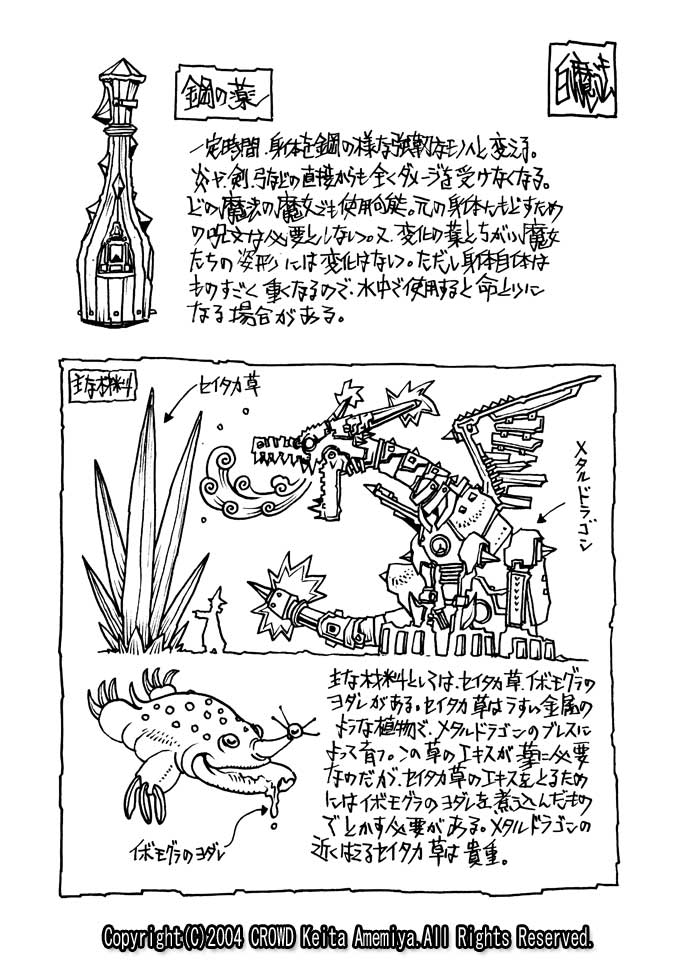 鋼の薬
白魔法
一定時間、身体を鋼の様な強靭なモノへと変える。
炎や、剣、弓などの直接からも全くダメージを受けなくなる。
どの魔法の魔女でも使用可能。元の身体にもどすため
の呪文は必要としない。又、変化の薬とちがい魔女
たちの姿形には変化はない。ただし身体自体は
ものすごく重くなるので、水中で使用すると命とりに
なる場合がある。
主な材料
セイタカ草
メタルドラゴン
イボモグラのヨダレ
主な材料としては、セイタカ草、イボモグラの
ヨダレがある。セイタカ草はうすい金属の
ような植物で、メタルドラゴンのブレスに
よって育つ。この草のエキスが薬に必要
なのだが、セイタカ草のエキスをとるため
にはイボモグラのヨダレを煮込んだもの
でとかす必要がある。メタルドラゴンの
近くにはえるセイタカ草は貴重。
Copyright(C)2004 CROWD Keita Amemiya.All Rights Reserved.